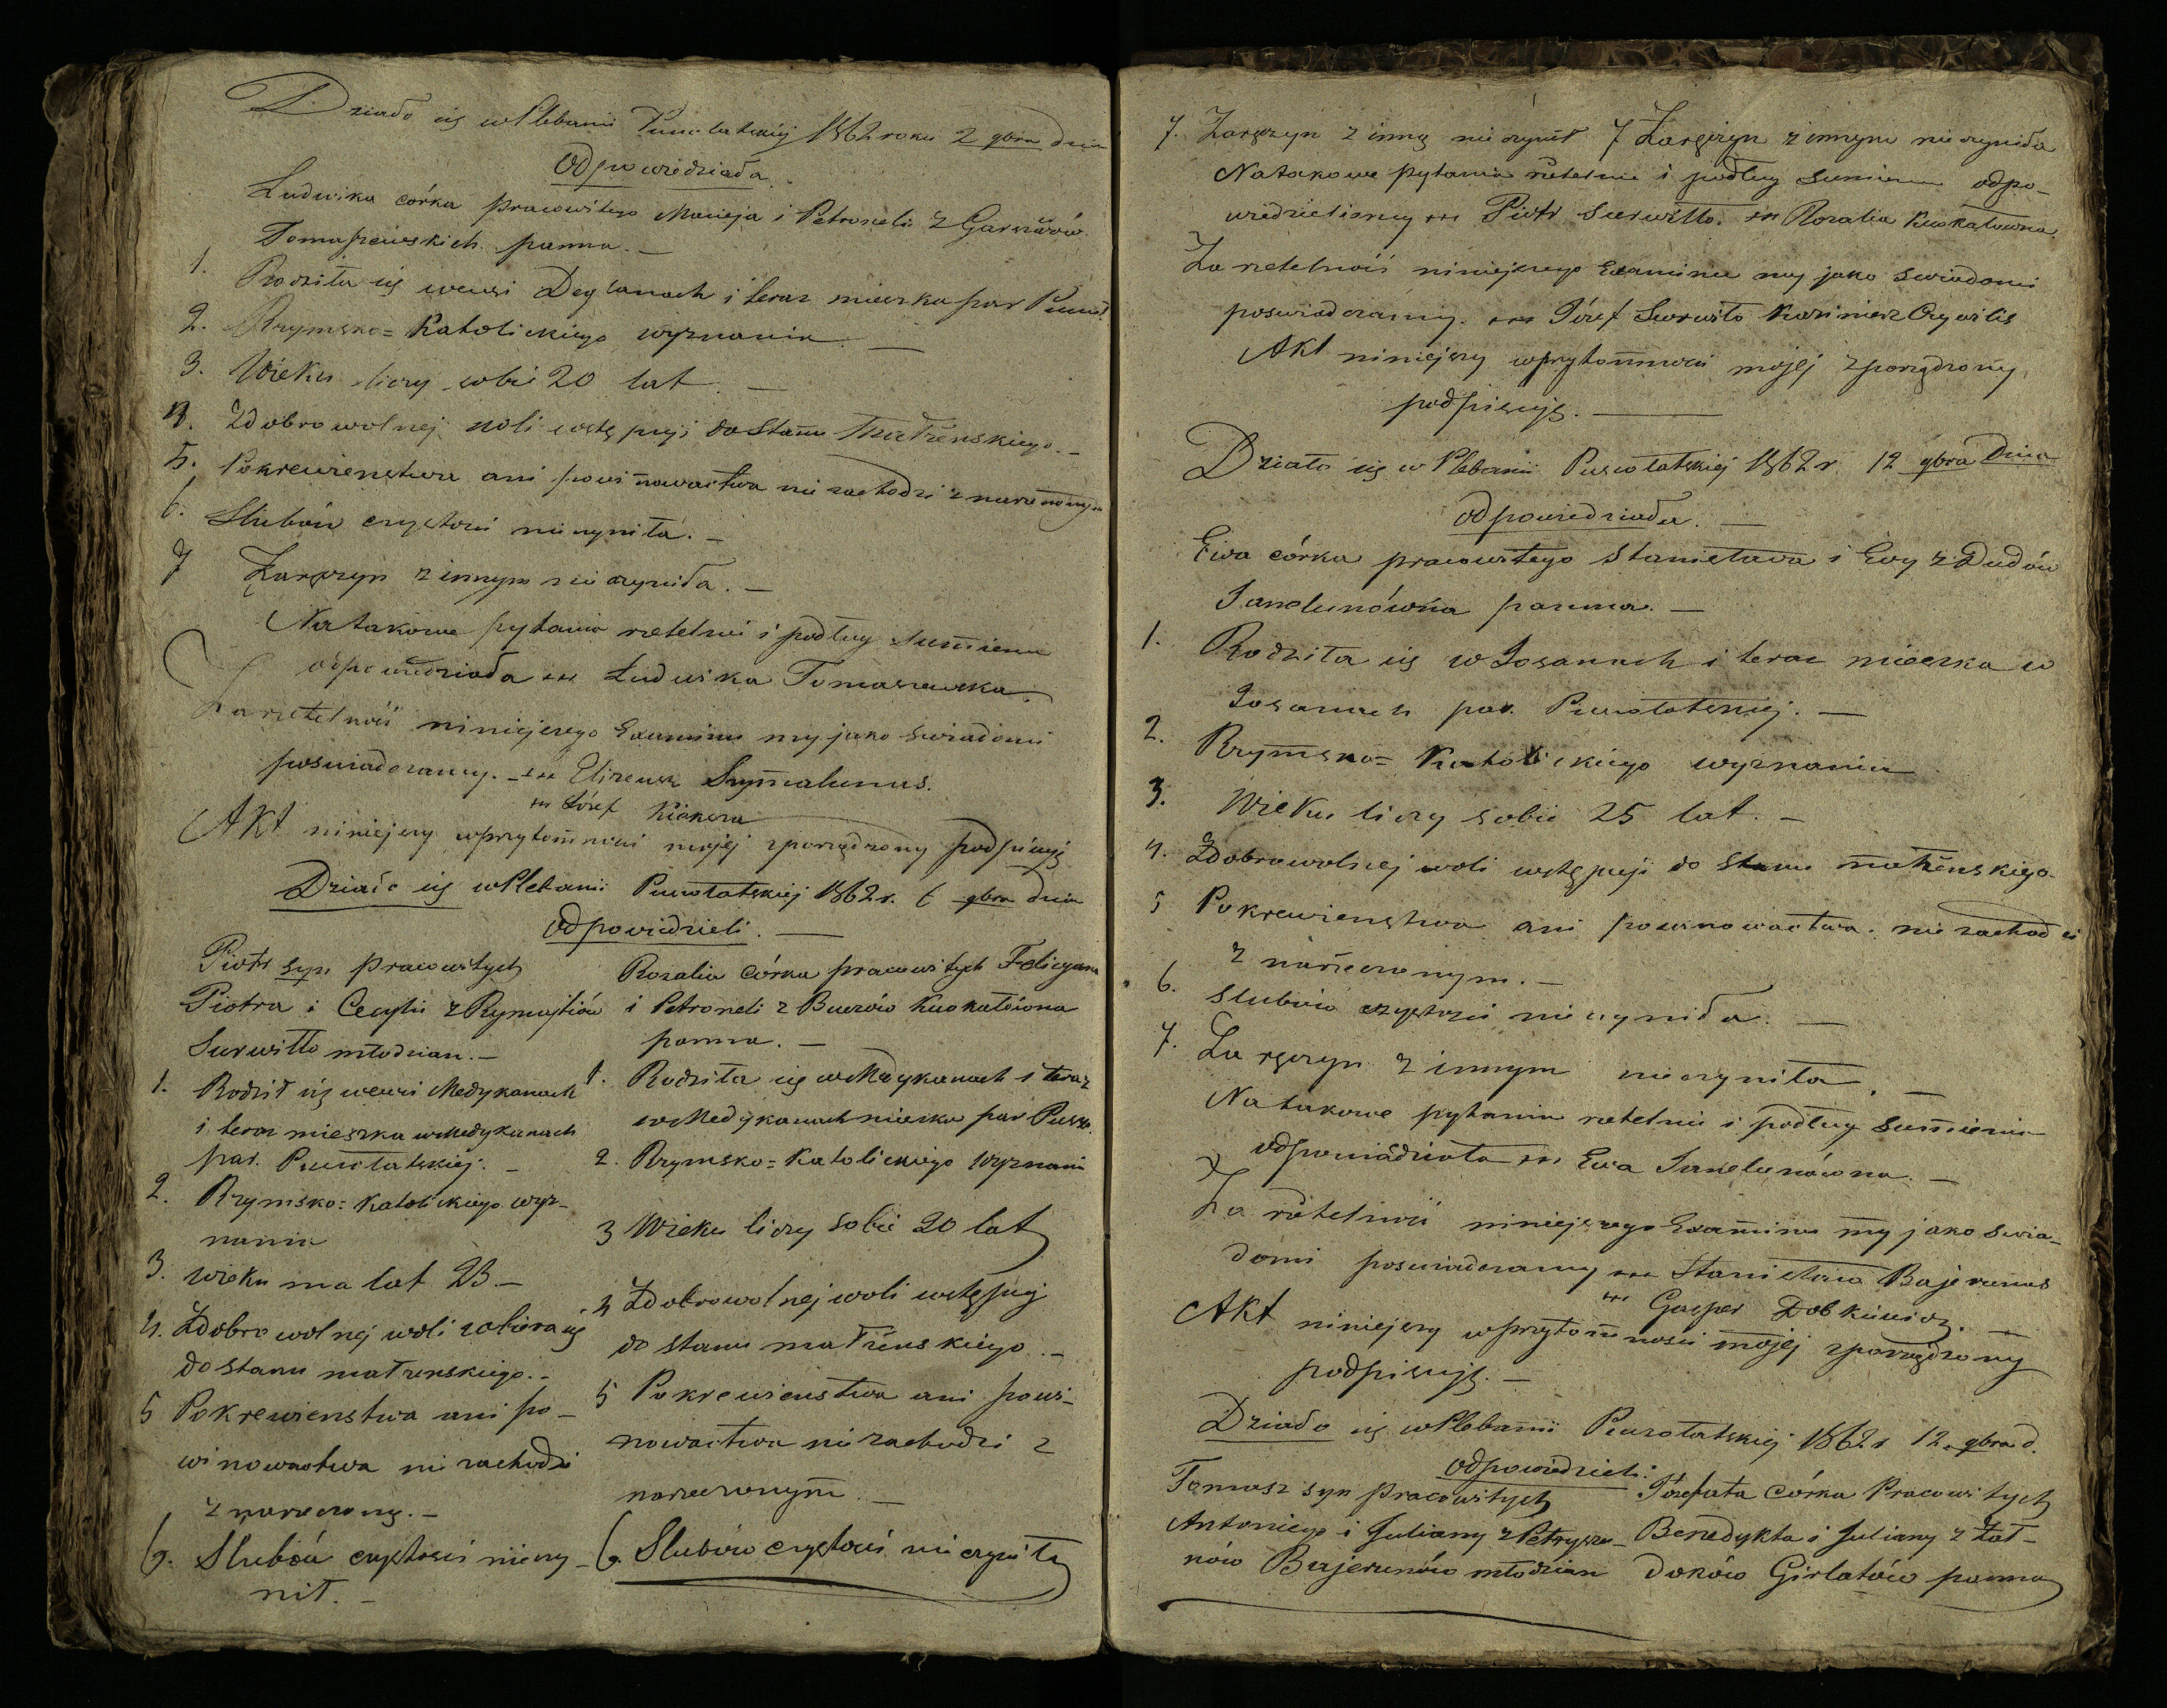 Działo się w Plebanii Puszołatskiej 1862 roku 2 9bra dnia
Odpowiedziała.
Ludwika córka pracowitego Macieja i Petroneli z
Tomaszewskich panna. —
1. Rodziła się we wsi i teraz mieszka par
2. Rzymsko=Katolickiego wyznania. —
3. Wieku liczy sobie 20 lat. —
4. Z dobrowolnej woli wstępuji do Stanu Małżenskiego. –
5. Pokrewienstwa ani powinowactwa nie zachodzi z narzeczonym
6. Slubów czystosci nie czyniła. –
7 Zaręczyn z innym nie czyniła. –
Na takowe pytania rzetelnie i podług sumienia
odpowiedziała +++ Ludwika Tomaszewska
Za rzetelność niniejszego Examinu my jako swiadomi
poswiadczamy. – +++ Elizeusz Szymalunas.
+++ Józef
Akt niniejszy w przytomnosci mojej zporządzony podpisuję
Działo się w Plebanii Puszołatskiej 1862 r. 6 9bra dnia
odpowiedzieli. —
Piotr syn pracowitych
Piotra i Cecylii z
Surwiłło młodzian. –
1. Rodził się we wsi Medykanach
i teraz mieszka w Medykanach
par. Puszołatskiej. –
2. Rzymsko=Katolickiego wyz-
nania
3. wieku ma lat 23 –
4. Z dobrowolnej woli zabiera się
do stanu małzenskiego. –
5 Pokrewienstwa ani po-
winowactwa nie zachodzi
z narzeczoną. –
6. Slubów czystosci nie czy-
nił. –
Rozalia córka pracowitych Felicyana
i Petroneli z
panna. –
1. Rodziła się w Medykanach i teraz
w Medykanach mieszka par
2. Rzymsko=Katolickiego Wyznania
3 Wieku liczy sobie 20 lat
4 Z dobrowolnej woli wstępuję
do stanu małżenskiego. –
5 Pokrewienstwa ani powi-
nowactwa nie zachodzi z
narzeczonym. –
6. Slubów czystosci nie czyniła
7. Zaręczyn z inną nie czynił 7 Zaręczyn z innym nie czyniła
Na takowe pytania rzetelnie i podług Sumienia odpo-
wiedzielismy +++ Piotr Surwiłło. +++ Rozalia
Za rzetelność niniejszego Examinu my jako swiadomi
poswiadczamy. +++ Józef Surwiło Kazimierz
Akt niniejszy w przytomnosci mojej zporządzony
podpisuję. —
Działo się w Plebanii Puszołatskiej 1862 r. 12 9bra Dnia
odpowiedziała. —
Ewa córka pracowitego Stanisława i Ewy z Dudów
Jankunówna panna. —
1. Rodziła się w i teraz mieszka w
par. Puszołatskiej. —
2. Rzymsko=Katolickiego wyznania
3. Wieku liczy sobie 25 lat. –
4. Z dobrowolnej woli wstępuji do stanu małżenskiego.
5 Pokrewienstwa ani powinowactwa nie zachodzi
z narzeczonym. –
6. Slubów czystosci nie czyniła. —
7. Zaręczyn z innym nie czyniła. —
Na takowe pytania rzetelnie i podług Sumienia
odpowiedziała +++ Ewa Jankunówna. –
Za rzetelność niniejszego Examinu my jako swia-
domi poswiadczamy +++ Stanisław Bajerunas
+++ Gasper Dobkiewicz. –
Akt niniejszy w przytomnosci mojej zporządzony
podpisuję. –
Działo się w Plebanii Puszołatskiej 1862 r 12. 9bra d.
odpowiedzieli:
Tomasz syn pracowitych
Antoniego i Juliany z
Bajerunów młodzian
Józefata córka Pracowitych
Benedykta i Juliany z Łał-
doków Girlatów panna